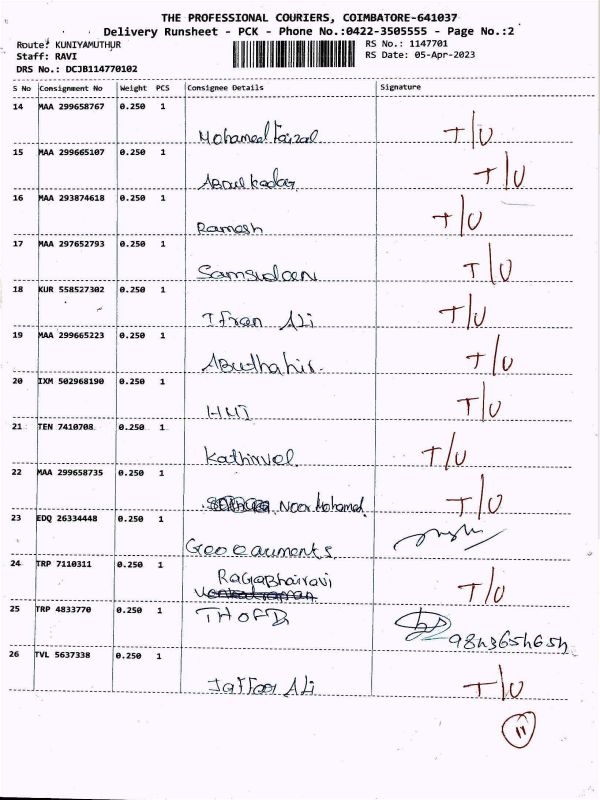 THE PROFESSIONAL COURIERS, COIMBATORE-641037
Delivery Runsheet - PCK - Phone No.:0422-3505555 - Page No.:2
Route: KUNIYAMUTHUR RS No.: 1147701
Staff: RAVI RS Date: 05-Apr-2023
DRS No.: DCJB114770102
S No Consignment No Weight PCS Consignee Details Signature
14 MAA 299658767 0.250 1
Mohamed Faizal T/U
15 MAA 299665107 0.250 1
Abdul kadar T/U
16 MAA 293874618 0.250 1
Ramesh T/U
17 MAA 297652793 0.250 1
Samsudeen T/U
18 KUR 558527302 0.250 1
Ifran Ali T/U
19 MAA 299665223 0.250 1
Abuthahir. T/U
20 IXM 502968190 0.250 1
HMI T/U
21 TEN 7410708 0.250 1
Kathirvel T/U
22 MAA 299658735 0.250 1
Noor Mohamed. T/U
23 EDQ 26334448 0.250 1
Geo Garments
24 TRP 7110311 0.250 1
RagaBhairavi T/U
Venkatraman
25 TRP 4833770 0.250 1
9843654654
26 TVL 5637338 0.250 1
Jaffar Ali T/U
11